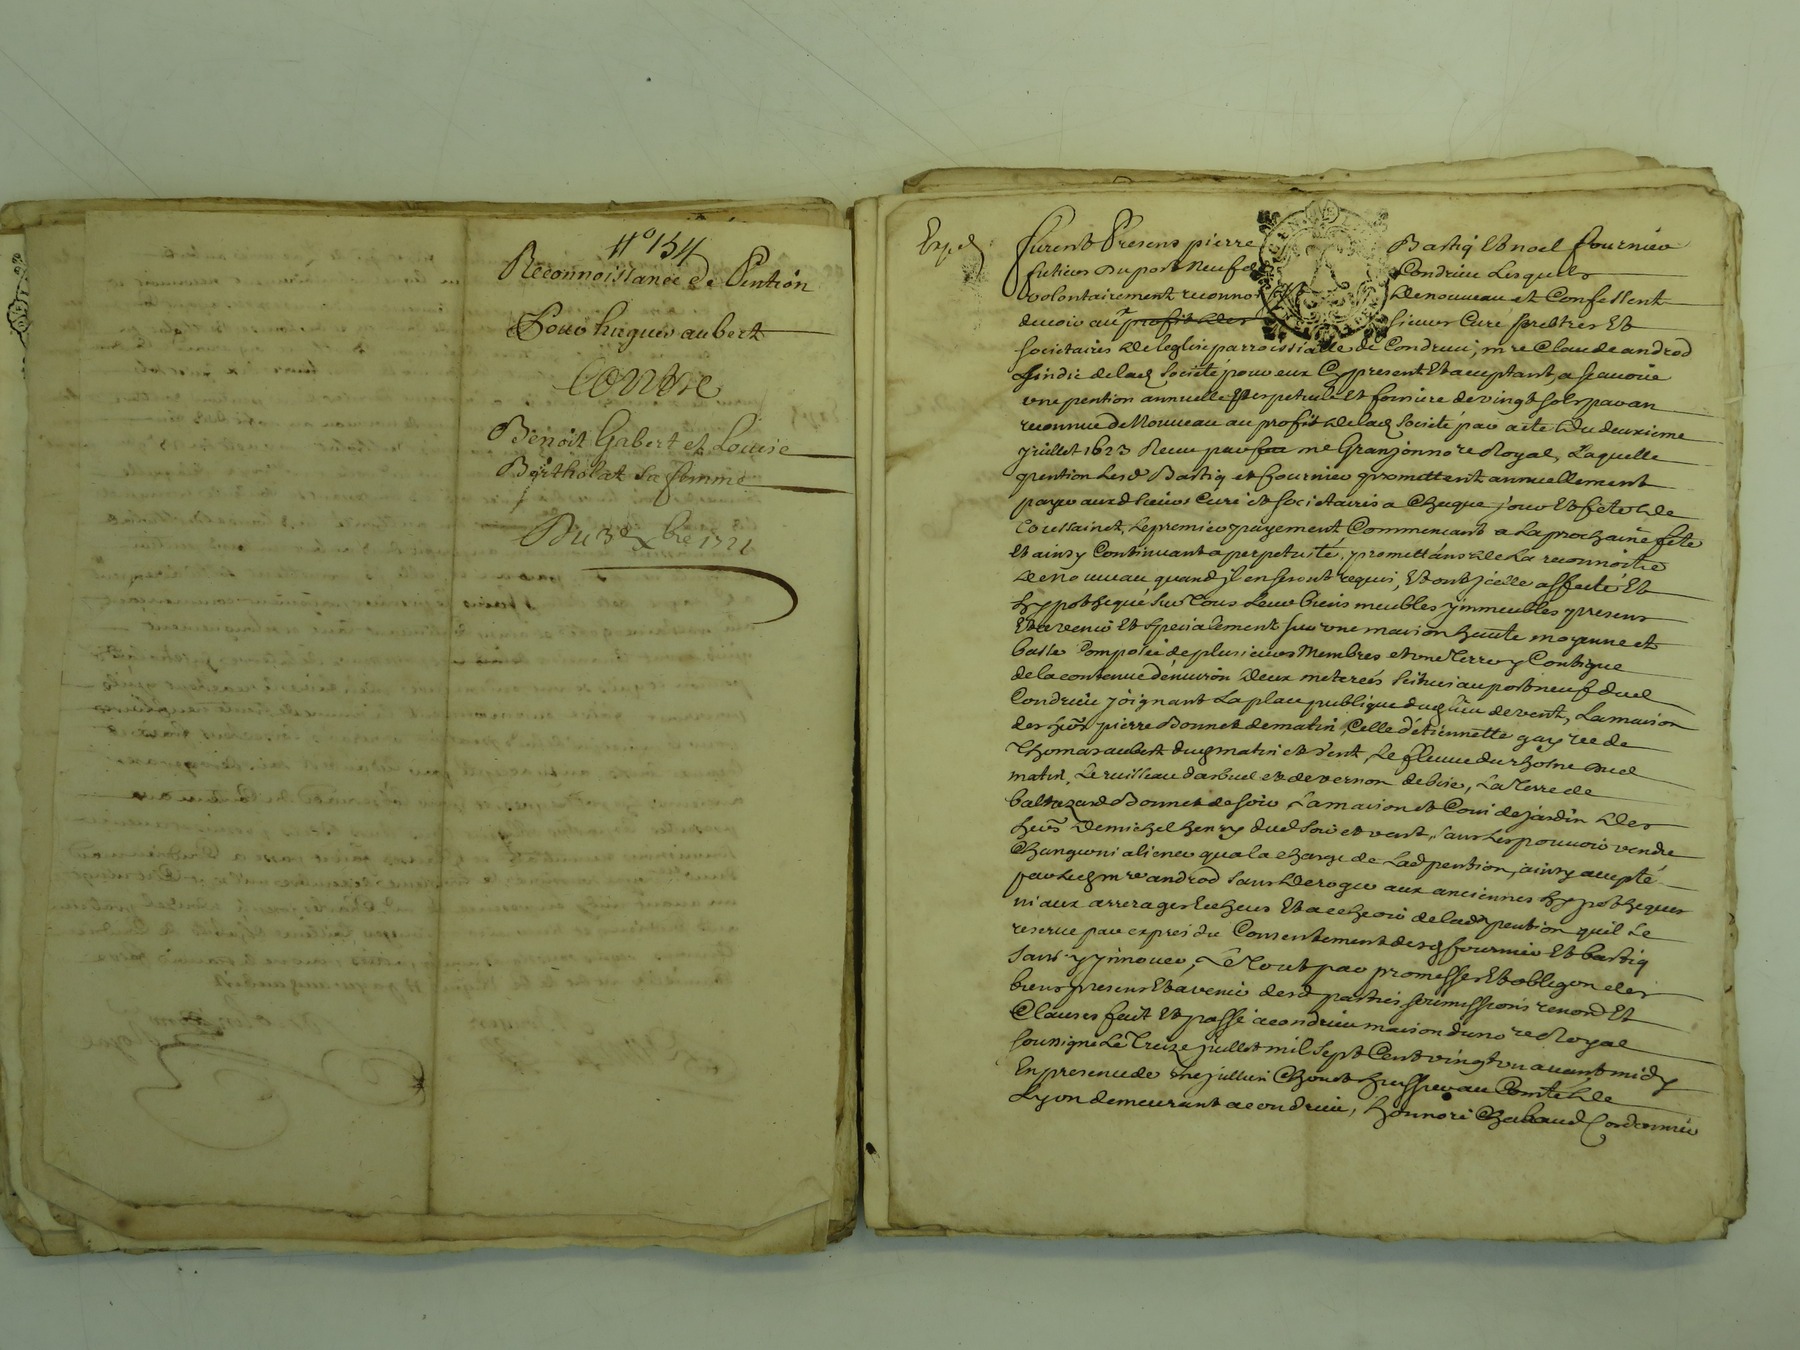 N° 154
Reconnoissance de Pention
Pour hugues aubert
Contre
Benoit Gabert et Louise
Bertholat sa femme
Du 3e xbre 1721
Exp.ed
furent Presens pierre Bastiq Et noel fournier
du port Neuf de Condrieu Lesquels
volontairement reconnoissent De nouveau et Confessent
devoir au profit des sieurs Curé prebtres Et
societaires de leglise parroissialle de Condrieu, mre Claude androd
sindic de lad societé pour eux Cy present Et aceptant, a scavoir
une pention annuelle perpetuelle Et fonciere de vingt sols par an
reconnue de Nouveau au profit de lad societé par acte du deuxieme
juillet 1623 Receu par me Granjon nore Royal, Laquelle
pention Lesd Bastiq et fournier promettent annuellement
payer auxd sieurs Curé et societaires a Chaque jour Et fete de
Toussainct, Le premier payement Commencant a La prochaine fete
Et ainsy Continuant a perpetuité, promettans de La reconnoitre
de nouveau quand jl en seront requis, Et ont jcelle affecté Et
hypothequé sur Tous Leurs biens meubles jmmeubles presens
Et avenir Et specialement sur une maison haute moyenne et
basse Composée de plusieurs Membres et une Terre y Contigue
de la contenue denviron deux meterées scitués au port neuf dud
Condrieu joignant La place publique de vent, La maison
des hers pierre Bonnet de matin, Celle detiennette gay vee de
Thomas aubert matin et vent, Le fleuve du rhosne dud
matin, Le ruisseau darbuel et de vernon de bise, La Terre de
baltazard Bonnet de soir La maison et Coin de jardin des
hers De michel henry dud soir et vent, sans Les pouvoir vendre
Changer ni aliener qua la charge de Lad pention, ainsy acepté
par led mre androd sans Deroger aux anciennes hypotheques
ni aux arrerages Echeus Et a echeoir de lad pention quil Se
reserve par expres du Consentement desd fournier Et bastiq
sans y jnnover, Le Tout par promesses Et obligon des
biens presens Et avenir desd parties soumissions renond Et
Clauses fait Et passé a condrieu maison du nore Royal
soussigné Le Treize juillet mil sept Cent vingt un avant midy
En presence de me jullien Chouet huissier au Comté de
Lyon demeurant a condrieu, honnoré Chabaud Cordonnier